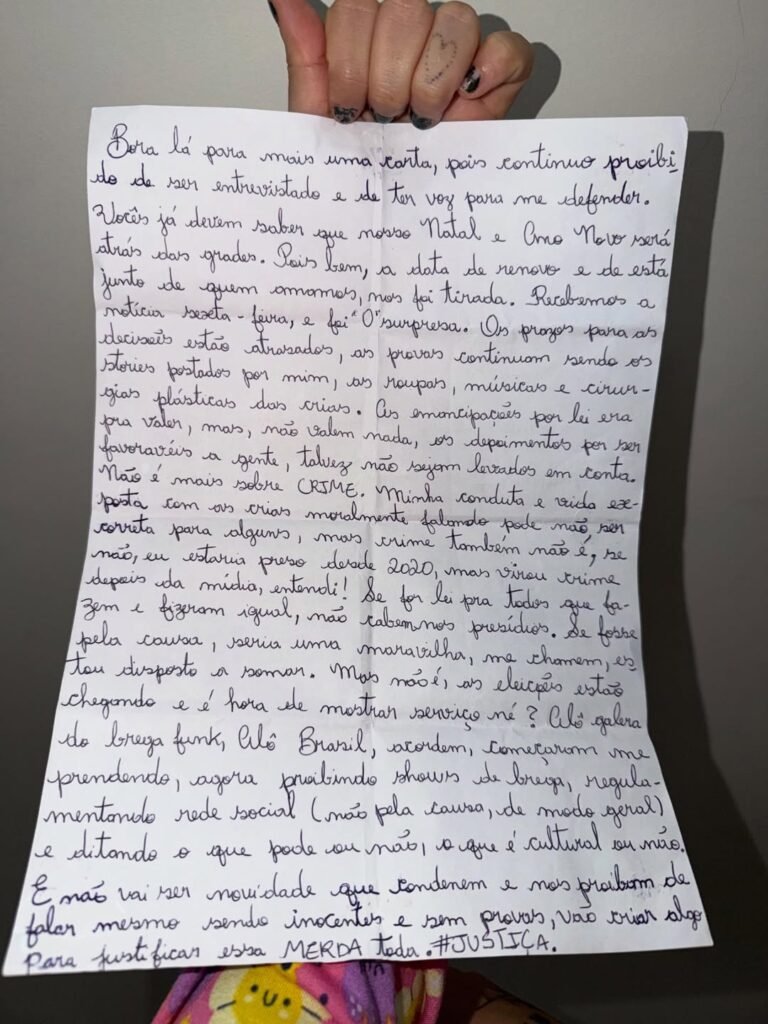 Bora lá para mais uma carta, pois continuo proibi-
do de ser entrevistado e de ter voz para me defender.
Vocês já devem saber que nosso Natal e Ano Novo será
atrás das grades. Pois bem, a data de renovo e de está
junto de quem amamos, nos foi tirada. Recebemos a
notícia sexta-feira, e foi "0" surpresa. Os prazos para as
deciseẽs estão atrasados, as provas continuam sendo os
stories postados por mim, as roupas, músicas e cirur-
gias plásticas das crias. As emancipações por lei era
pra valer, mas, não valem nada, os depoimentos por ser
favoravéis a gente, talvez não sejam levados em conta.
Não é mais sobre CRIME. Minha conduta e vida ex-
posta com as crias moralmente falando pode não ser
correta para alguns, mas crime também não é, se
não, eu estaria preso desde 2020, mas virou crime
depois da mídia, entendi! Se for lei pra todos que fa-
zem e fizeram igual, não cabem nos presídios. Se fosse
pela causa, seria uma maravilha, me chamem, es-
tou disposto a somar. Mas não é, as eleições estão
chegando e é hora de mostrar serviço né? Alô galera
do brega funk, Alô Brasil, acordem, começaram me
prendendo, agora proibindo shows de brega, regula-
mentando rede social (não pela causa, de modo geral)
e ditando o que pode ou não, o que é cultural ou não.
E não vai ser novidade que condenem e nos proibam de
falar mesmo sendo inocentes e sem provas, vão criar algo
para justificar essa MERDA toda. #JUSTIÇA.